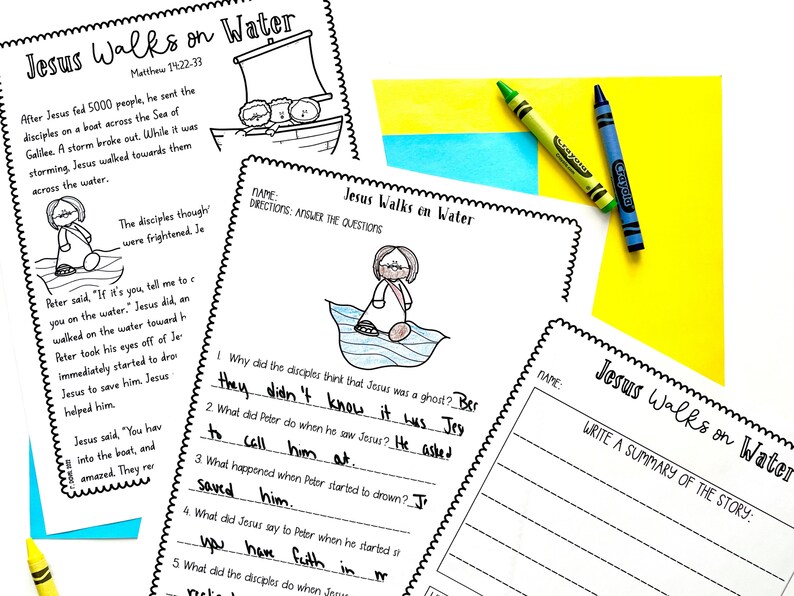 Jesus Walks on Water
Matthew 14:22-33
After Jesus fed 5000 people, he sent the
disciples on a boat across the Sea of
Galilee. A storm broke out. While it was
storming, Jesus walked towards them
across the water.
The disciples though
were frightened. Je
Peter said, "If it's you, tell me to c
you on the water." Jesus did, an
walked on the water toward h
Peter took his eyes off of Je
immediately started to drow
Jesus to save him. Jesus
helped him.
Jesus said, "You hav
into the boat, and
amazed. They re
NAME:
Jesus Walks on Water
DIRECTIONS: ANSWER THE QUESTIONS
1. Why did the disciples think that Jesus was a ghost? Bec
they didn't know it was Jes
2. What did Peter do when he saw Jesus? He asked
to call him at.
3. What happened when Peter started to drown? Je
saved him.
4. What did Jesus say to Peter when he started si
you have faith in m
5. What did the disciples do when Jesus
Jesus Walks on Water
NAME:
WRITE A SUMMARY OF THE STORY:
Crayola
Crayola